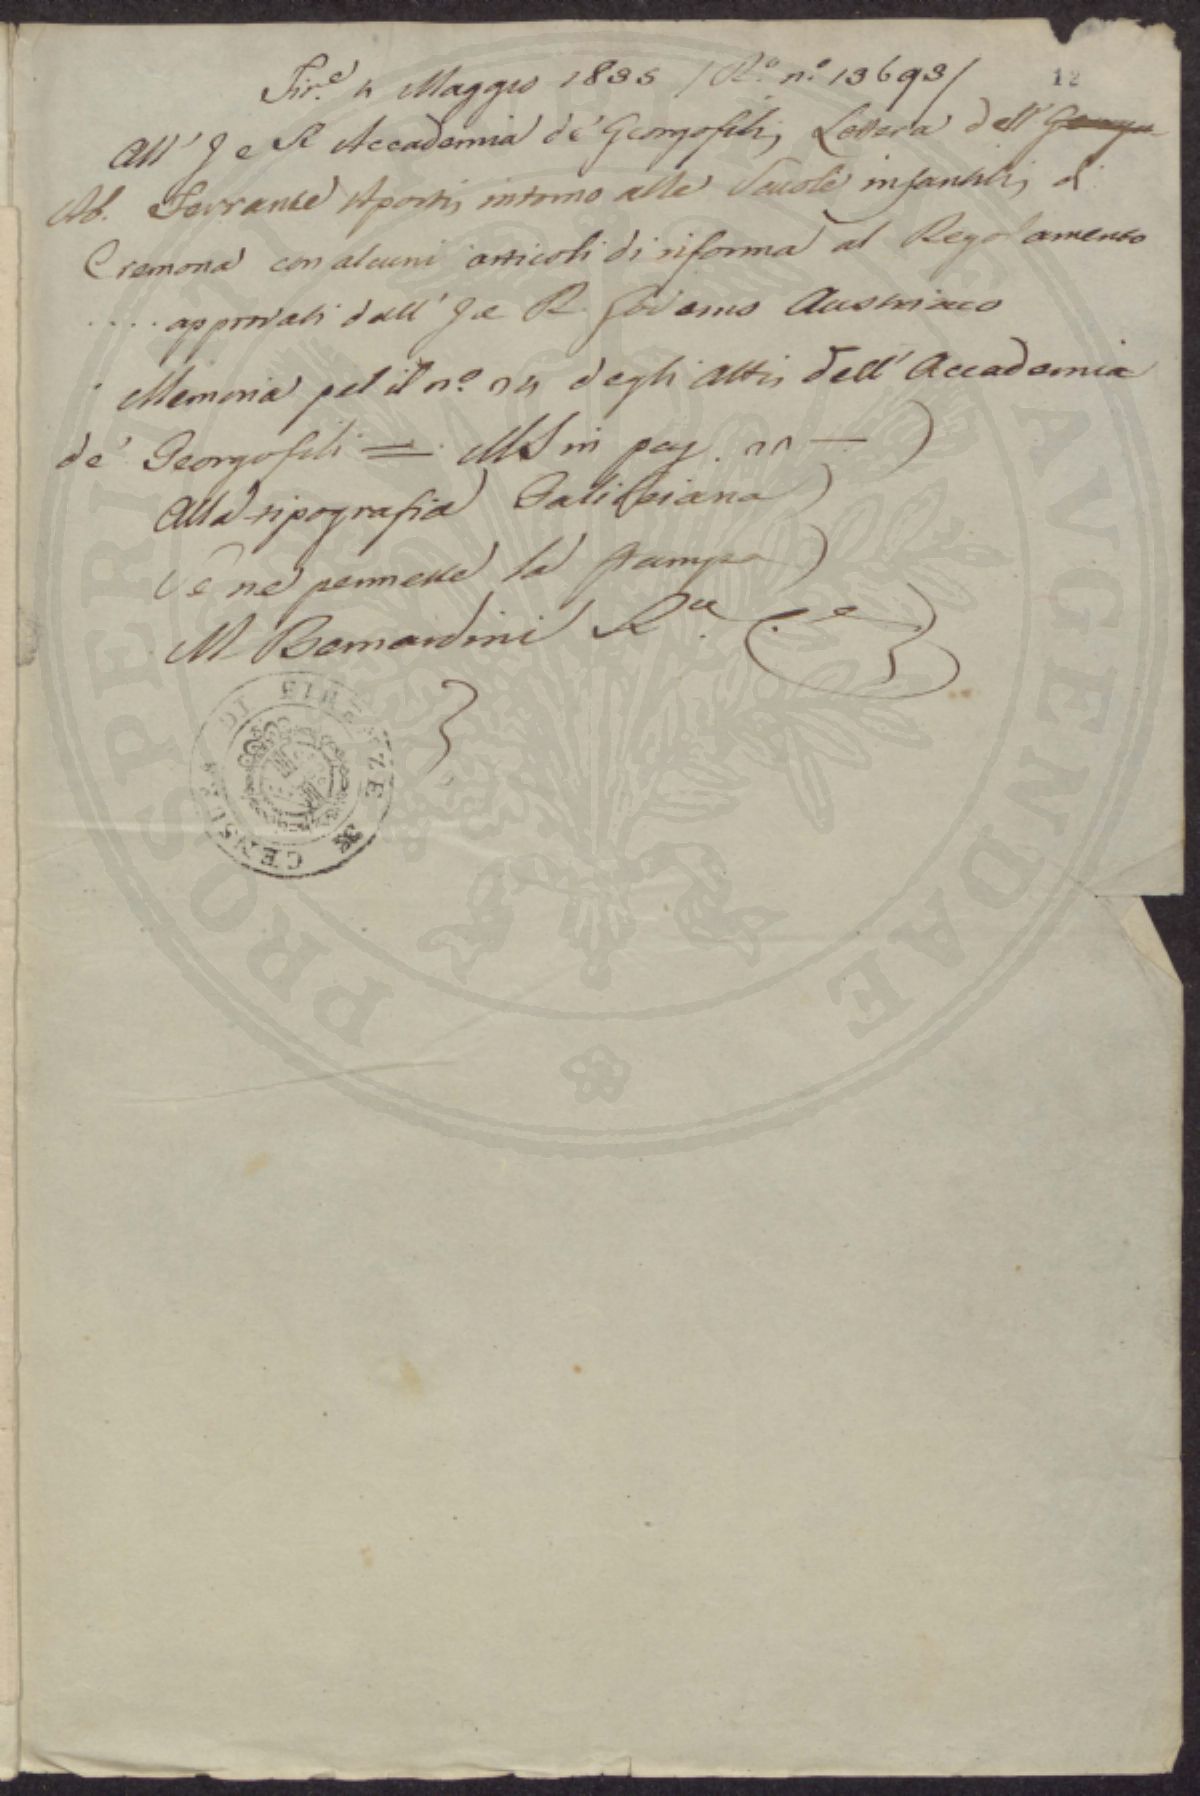 12
Fir.e 4 Maggio 1835 /R.o n.o 13693/
All' I e R Accademia de' Georgofili, Lettera dell'
Ab. Ferrante Aporti, intorno alle Scuole infantili, di
Cremona con alcuni articoli di riforma al Regolamento
.... approvati dall' I e R. Governo Austriaco
Memoria pel il n.o degli Atti, dell' Accademia
de' Georgofili = MS in pag. — )
Alla tipografia Galileiana )
Se ne permette la stampa )
M Bernardini R.
CENSURA DI FIRENZE
PROSPERITATI AVGENDAE